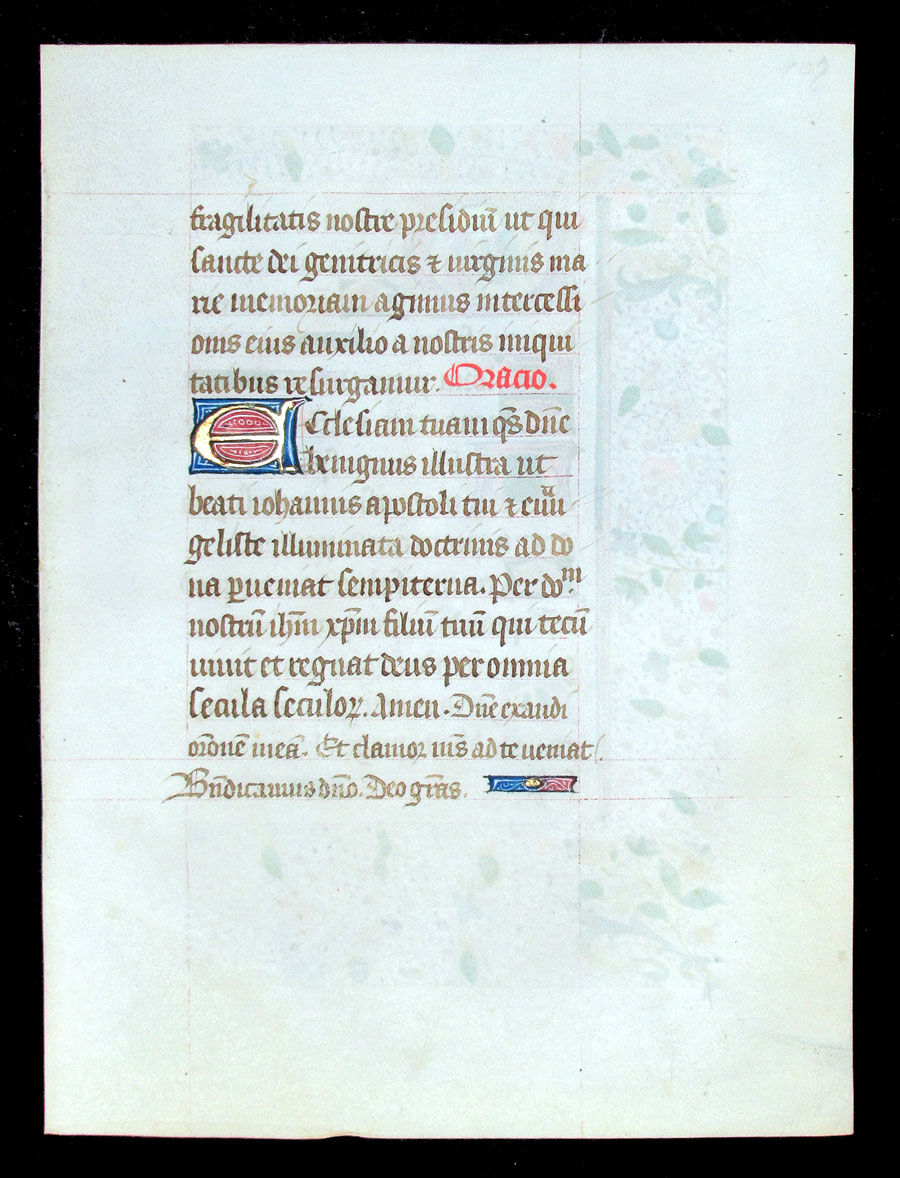 107
fragilitatis nostre presidiũ ut qui
sancte dei genitricis ⁊ uirginis ma
rie memoriam agimus intercessi
onis eius auxilio a nostris iniqui
tatibus resurgamur. Oracio.
Ecclesiam tuam q̃s dñe
benignus illustra ut
beati iohannis apostoli tui ⁊ euᷓu
geliste illuminata doctrinis ad do
na ꝑueniat sempiterna. Per doᵐ.
nostrũ ihm̃ xp̃m filiũ tuũ qui tecũ
uiuit et regnat deus per omnia
secula seculoꝝ. Amen. Dñe exaudi
orõnẽ meã. Et clamor m̃s ad te ueniat.
Bñdicamus dño. Deo grãs.